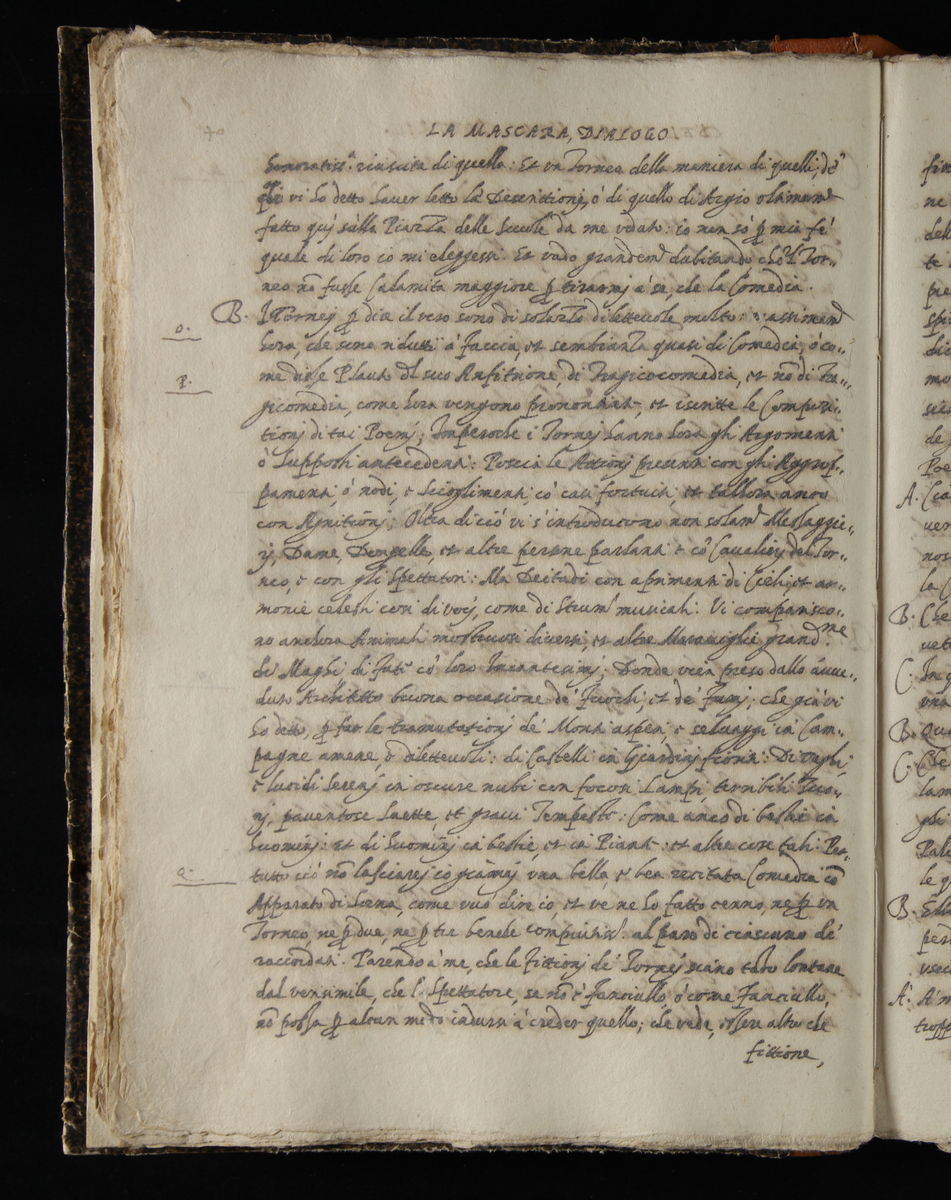 LA MASCARA, DIALOGO
honoratiss.ª riuscita di quello: Et vn Torneo della maniera di quelli, de'
qli vi hò detto hauer letto la Descrittionj, ò di quello di Argio vltimam.te
fatto quj sulla Piazza delle Scuole da me veduto: io non sò p mia fè
quale di loro io mi eleggessi. Et vado grandem.te dubitando che'l Tor-
neo nō fusse Calamita maggiore p tirarmj à sè, che la Comedia.
B. I Tornej p dire il vero sono di solazzo dilettevole molto: massimam.te
o. hora, che sono ridutti à faccia, et sembianza quasi di Comedia, ò co-
me disse Plauto del suo Anfitrione di Tragicocomedia, et nō di Tra-
p. gicomedia, come hora vengono prononciate, et iscritte le Composi-
tionj di tai Poemj; Imperoche i Tornej hanno hora gli Argomenti
ò Supposti antecedenti: Poscia le Attionj presenti con gli Aggrop-
pamenti, ò nodi, e Scioglimenti cō casi fortuiti, et tallora anco
con Agnitionj; Oltra di ciò vi s'introducono non solam.te Messaggie-
rj, Dame, Donzelle, et altre persone parlanti e cō Cavalierj del Tor-
neo, e con gli Spettatori: Ma Deitadi con aprimenti di Cieli, et ar-
monie celesti cosi di vocj, come di Strum.ti musicali: Vi comparisco-
no anchora Animali mostruosi diversi, et altre Maraviglie grand.me
de' Maghi, di fate cō loro Incantesimj; Donde vien preso dallo auve-
duto Architetto buona occasione de' Fuochi, et de' Fumj, che già vi
hò detto, p far le tramutationj de' Monti asperi, e seluaggi in Cam-
pagne amene, e dilettevoli: di Castelli in Giardinj fioriti: Di vaghi,
e lucidi Serenj in oscure nubi con focosi Lampi, terribili Tuo-
nj, paventose Saette, et gravi Tempeste: Come anco di bestie in
huominj: et di huominj in bestie, et in Piante: et altre cose tali. Per
q. tutto ciò nō lasciarej io giāmaj vna bella, e ben recitata Comedia cō
Apparato di Scena, come vuò dire io, et ve ne hò fatto cenno, ne p vn
Torneo, ne p due, ne p tre benche compiutiss.i al paro di ciascuno de'
raccordati. Parendo à me, che le fittionj de' Tornej siano tāto lontane
dal verisimile, che l' Spettatore, se nō è fanciullo, ò come fanciullo,
nō possa p alcun modo indursi à creder quello, che vede, essere altro che
fittione,